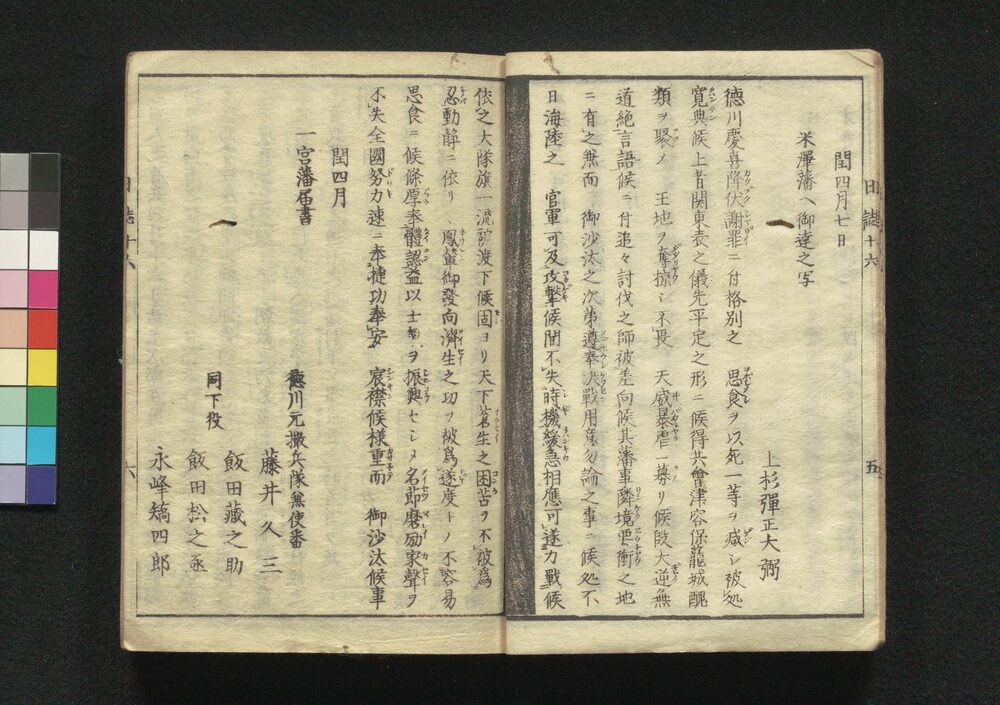 閏四月七日
米澤藩ヘ御達之写
上杉彈正大弼
德川慶喜降伏謝罪ニ付格別之 思食ヲ以死一等ヲ减シ被処
寛典候上者関東表之儀先平定之形ニ候得共會津容保籠城醜
類ヲ聚メ 王地ヲ奪掠シ不畏 天威暴虐一募リ候段大逆無
道絶言語候ニ付追々討伐之師被差向候其藩事隣境要衝之地
ニ有之無而 御沙汰之次第遵奉决戰用意勿論之事ニ候処不
日海陸之 官軍可及攻擊候間不失時機緩急相應可遂力戰候
依之大隊旗一流 渡下候固ヨリ天下蒼生之困苦ヲ不被為
忍動静ニ依リ 鳳輦御發向濟生之功ヲ被為遂度トノ不容易
思食ニ候條厚奉體認益以士氣ヲ振興セシメ名節磨励家聲ヲ
不失全國努力速ニ奉捷功奉安 宸襟候樣重而 御沙汰候事
閏四月
一宮藩届書
德川元撒兵隊無使番
藤井久三
同下役
飯田藏之助
飯田松之丞
永峰 四郎
日誌十六
五
六